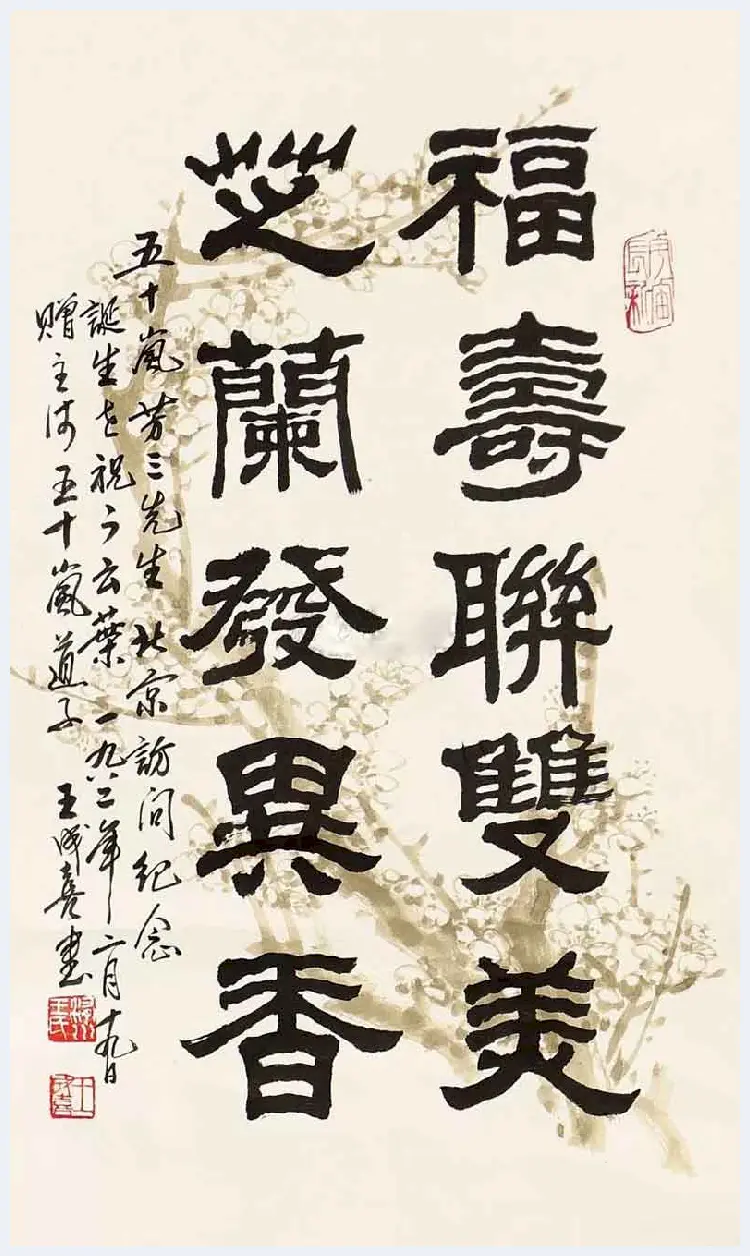 福壽聯雙美
芝蘭發異香
五十嵐芳三先生北京訪问纪念
誕生を祝う云葉 一九八二年二月十九日
赠主 五十嵐道子 王成喜書